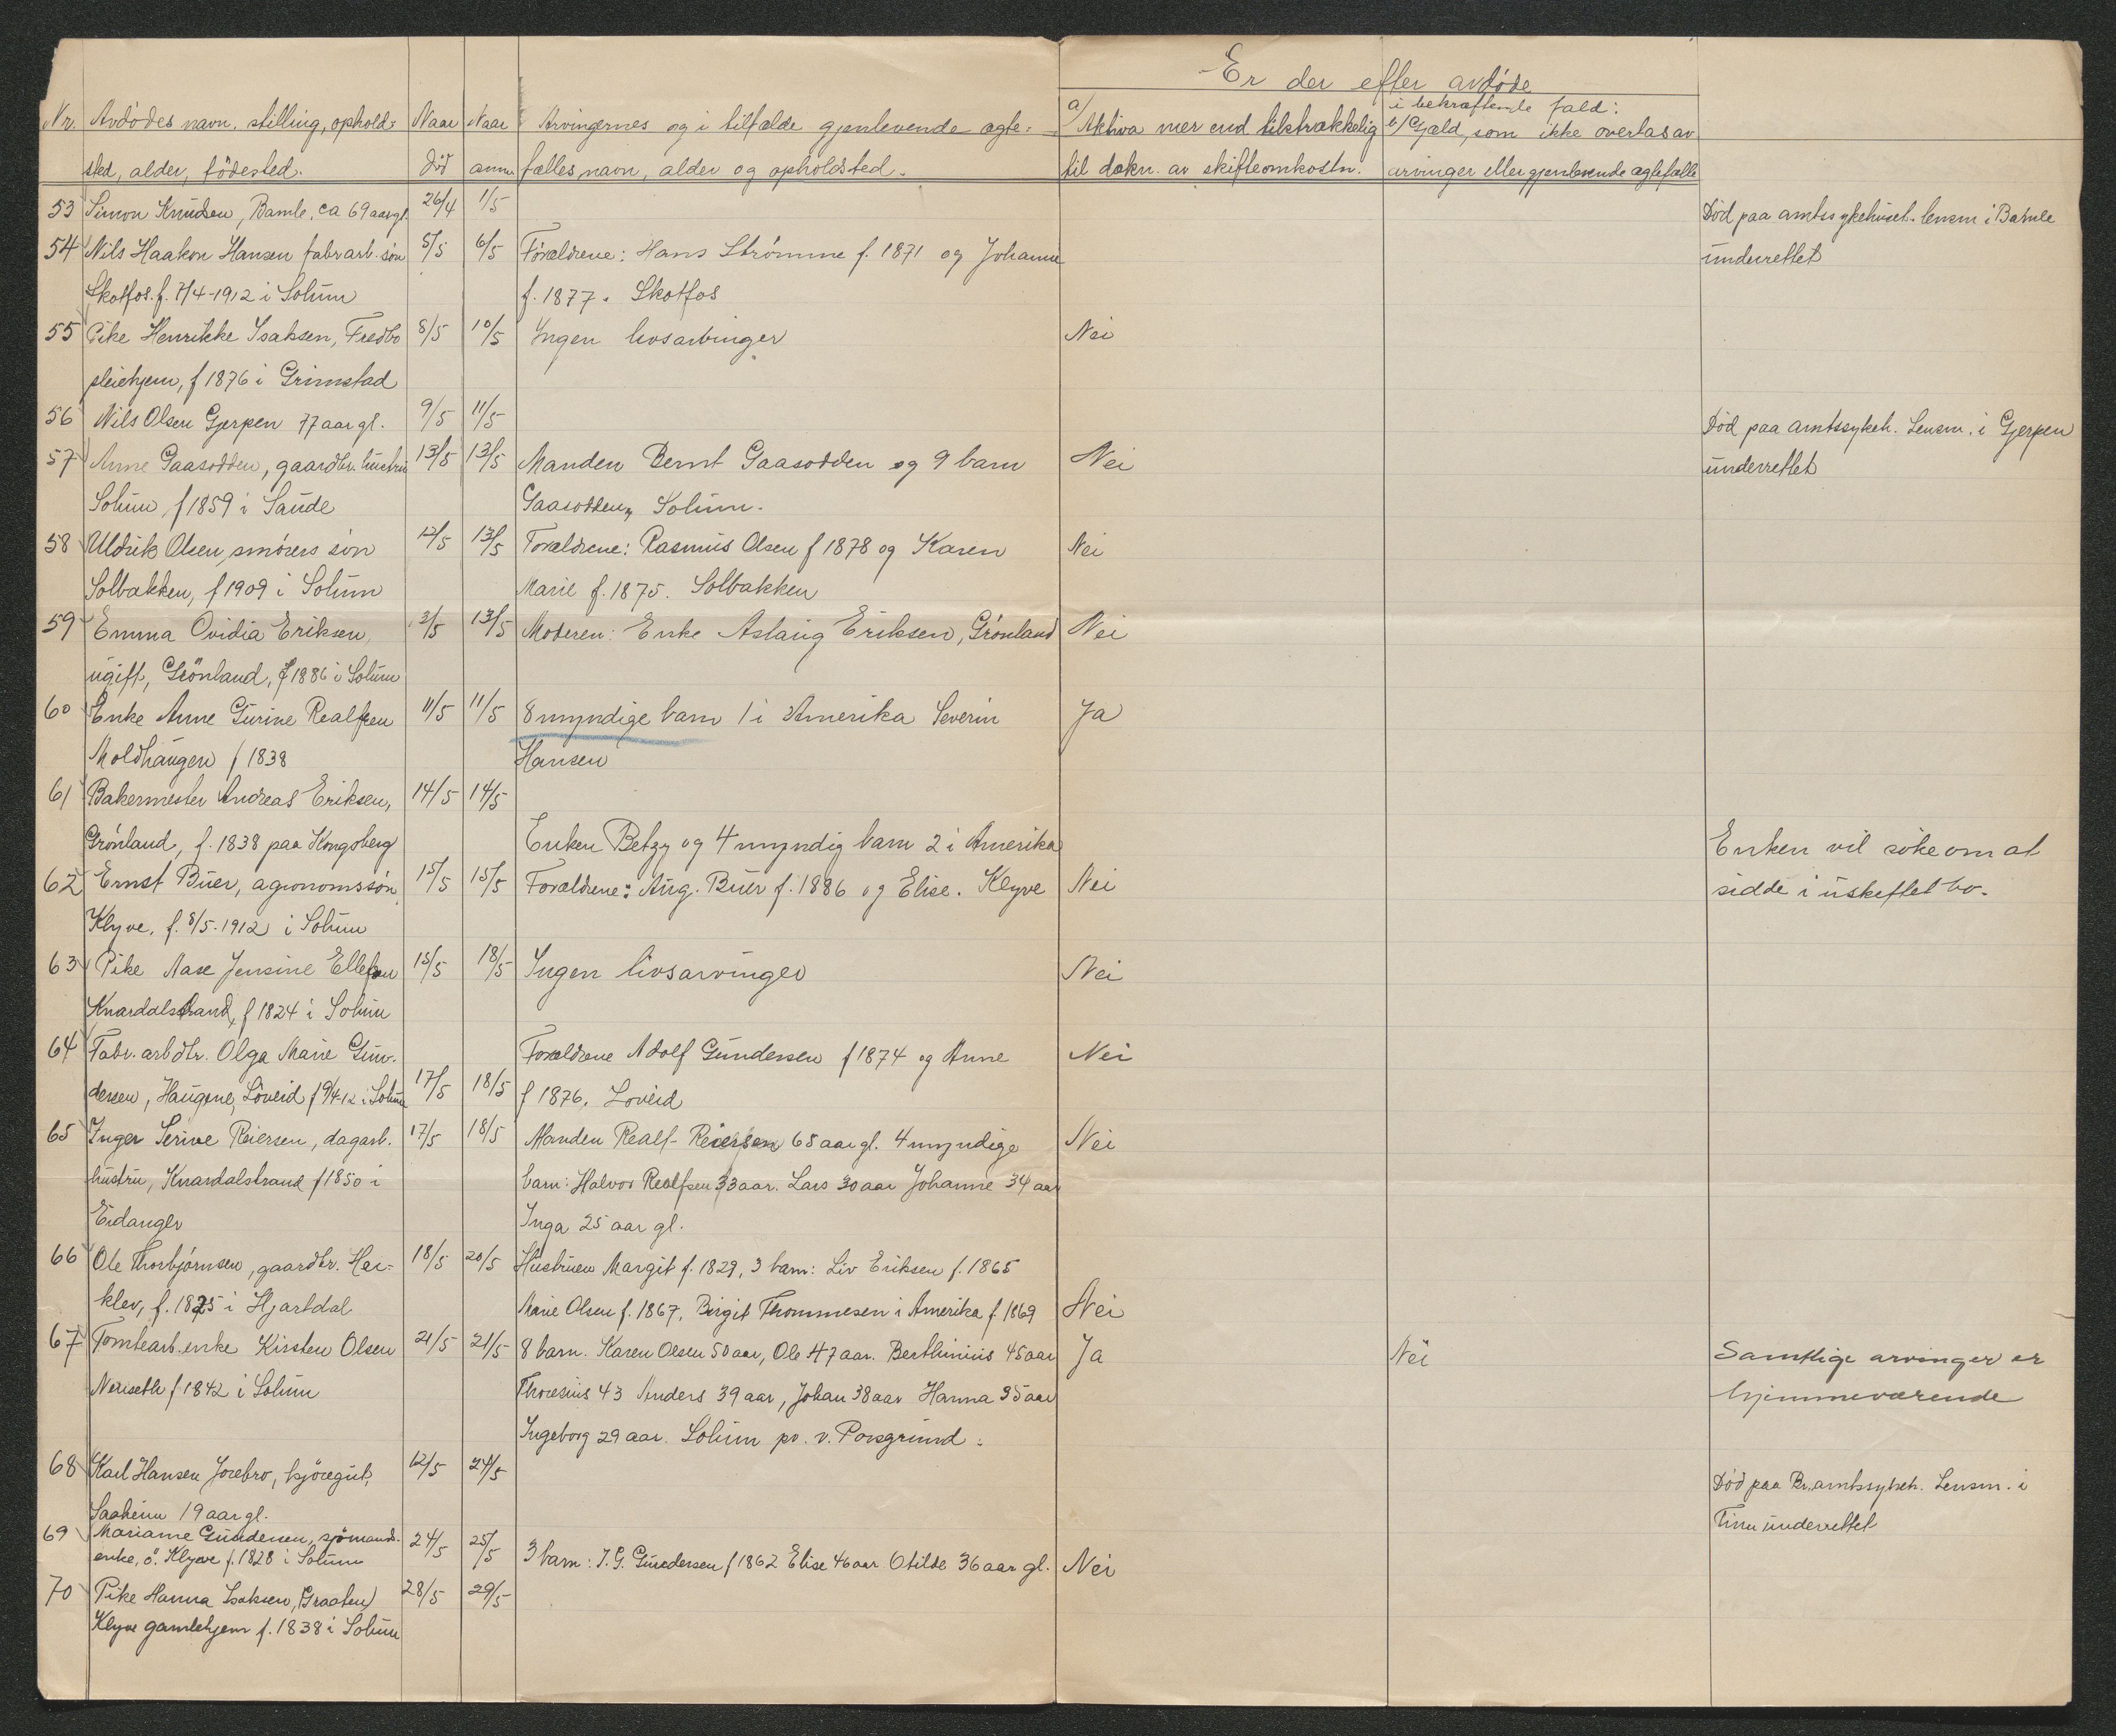 Er der efter avdøde
Nr. Avdødes navn, stilling, ophold- Naar Naar Arvingernes og i tilfælde gjenlevende ægte- a/ Aktiva mer end tilstrækkelig i bekræftende fald: b/ Gjæld, som ikke overtas av
sted, alder, födested. död anm. fælles navn, alder og opholdsted. til dækn. av skifteomkostn. arvinger eller gjenlevende ægtefælle
53 Simon Knudsen, Bamle, ca 69 aar gl. 26/4 1/5 Död paa amtssykehuset. lensm i Bamle
54 Nils Haakon Hansen fabrarb. søn 5/5 6/5 Forældrene: Hans Strømme f. 1871 og Johanne underrettet
Skotfos. f. 7/4-1912 i Solum f. 1877. Skotfos
55 Pike Henrikke Isaksen, Fredbo 8/5 10/5 Ingen livsarvinger Nei
pleiehjem, f 1876 i Grimstad
56 Nils Olsen Gjerpen 77 aar gl. 9/5 11/5 Död paa amtssykeh. Lensm. i Gjerpen
57 Anne Gaasodden, gaardbr. hustru 13/5 13/5 Manden Bernt Gaasodden og 9 barn Nei underrettet
Solum, f 1859 i Saude Gaasodden, Solum.
58 Uldrik Olsen, smörers sön 12/5 13/5 Forældrene: Rasmus Olsen f 1878 og Karen Nei
Solbakken, f 1909 i Solum Marie f. 1875. Solbakken
59 Emma Ovidia Eriksen, 3/5 13/5 Moderen: Enke Aslaug Eriksen, Grönland Nei
ugift, Grönland, f 1886 i Solum
60 Enke Anne Gurine Realfsen 11/5 11/5 8 myndige barn 1 i Amerika Severin Ja
Moldhaugen f 1838 Hansen
61 Bakermester Andreas Eriksen, 14/5 14/5
Grönland, f. 1838 paa Kongsberg Enken Betzy og 4 myndig barn 2 i Amerika Enken vil söke om at
62 Ernst Buer, agronomssön, 15/5 15/5 Forældrene: Aug. Buer f. 1886 og Elise. Klyve Nei sidde i uskeftet bo.
Klyve, f. 8/5-1912 i Solum
63 Pike Aase Jensine Ellefsen 15/5 18/5 Ingen livsarvinger Nei
Knardalstrand, f 1824 i Solum
64 Fabr. arb dtr. Olga Marie Gun- Forældrene Adolf Gundersen f 1874 og Anne Nei
dersen, Haugene, Löveid f 9/4-12 i Solum 17/5 18/5 f 1876. Loveid
65 Inger Serine Reiersen, dagarb. 17/5 18/5 Manden Realf Reiersen 68 aar gl. 4 myndige Nei
hustru, Knardalstrand f 1850 i barn: Halvor Realfsen 33 aar. Lars 30 aar Johanne 34 aar
Eidanger Inga 25 aar gl.
66 Ole Thorbjørnsen, gaardbr. Hei- 18/5 20/5 Hustruen Margit f. 1829, 3 barn: Liv Eriksen f. 1865
klev, f. 1825 i Hjartdal Marie Olsen f. 1867, Birgit Thommesen i Amerika f 1869 Nei
67 Tomtearb. enke Kirsten Olsen 21/5 21/5 8 barn. Karen Olsen 50 aar, Ole 47 aar. Berthinius 45 aar Ja Nei Samtlige arvinger er
Nenseth f 1842 i Solum Thoresius 43 Anders 39 aar, Johan 38 aar Hanna 35 aar hjemmeværende
Ingeborg 29 aar. Solum pr. v. Porsgrund.
68 Karl Hansen Jorebro, kjöregut, 12/5 24/5 Död paa Br. amtssykeh. Lensm. i
Saaheim 19 aar gl. Tinn underrettet
69 Mariane Gundersen, sjömands-
enke, ö. Klyve f. 1828 i Solum 24/5 25/5 3 barn: I. G. Gundersen f 1862 Elise 46 aar Otilde 36 aar gl. Nei
70 Pike Hanna Isaksen, (Graaten) 28/5 29/5
Klyve gamlehjem f. 1838 i Solum